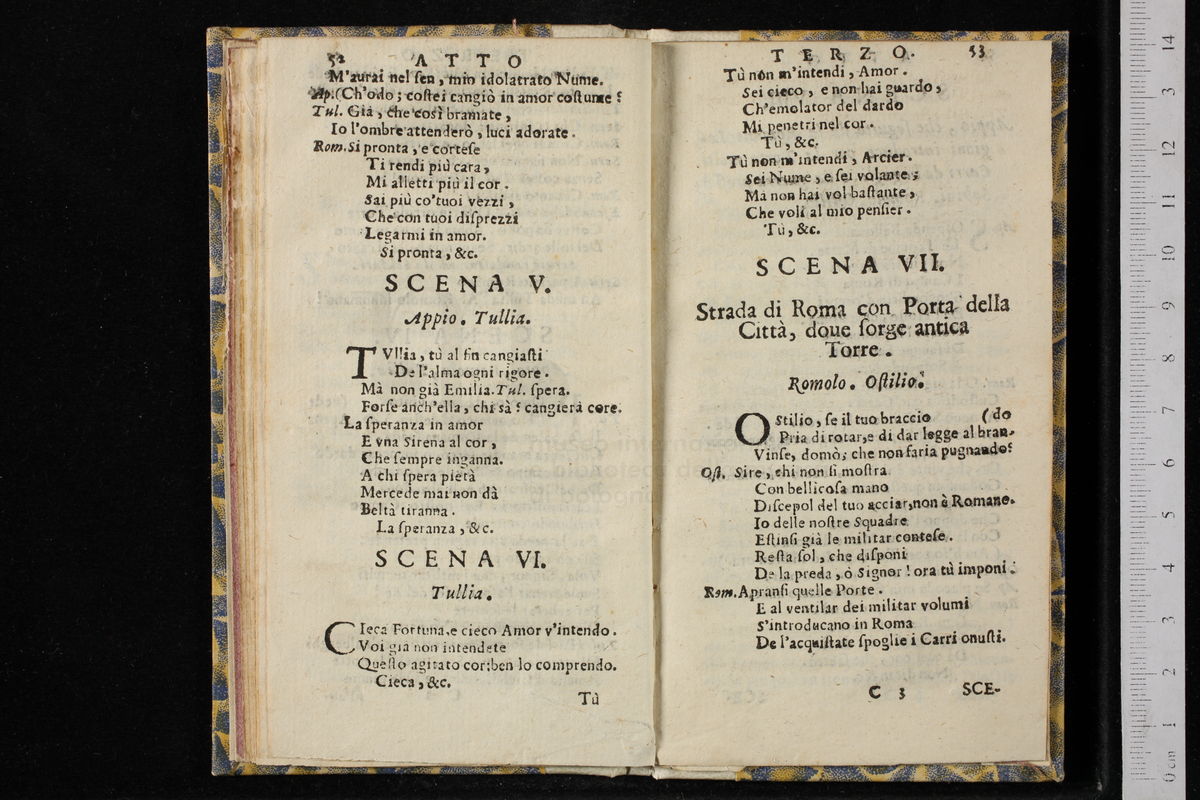 52 ATTO
M'aurai nel ſen, mio idolatrato Nume.
Ap. (Ch'odo; coſtei cangiò in amor coſtume?
Tul. Già, che così bramate,
Io l'ombre attenderò, luci adorate.
Rom. Si pronta, e corteſe
Ti rendi più cara,
Mi alletti più il cor.
Sai più co'tuoi vezzi,
Che con tuoi diſprezzi
Legarmi in amor.
Si pronta, &c.
SCENA V.
Appio. Tullia.
TVllia, tù al fin cangiaſti
De l'alma ogni rigore.
Mà non già Emilia. Tul. ſpera.
Forſe anch'ella, chi sà? cangierà core.
La ſperanza in amor
E vna Sirena al cor,
Che ſempre inganna.
A chi ſpera pietà
Mercede mai non dà
Beltà tiranna.
La ſperanza, &c.
SCENA VI.
Tullia.
CIeca Fortuna, e cieco Amor v'intendo.
Voi già non intendete
Queſto agitato cor: ben lo comprendo.
Cieca, &c.
Tù
TERZO. 53
Tù non m'intendi, Amor.
Sei cieco, e non hai guardo,
Ch'emolator del dardo
Mi penetri nel cor.
Tù, &c.
Tù non m'intendi, Arcier.
Sei Nume, e ſei volante;
Ma non hai vol baſtante,
Che voli al mio penſier.
Tù, &c.
SCENA VII.
Strada di Roma con Porta della
Città, doue ſorge antica
Torre.
Romolo. Oſtilio.
OStilio, ſe il tuo braccio (do
Pria di rotar, e di dar legge al bran-
Vinſe, domò; che non faria pugnando?
Oſt. Sire, chi non ſi moſtra
Con bellicoſa mano
Diſcepol del tuo acciar, non è Romano.
Io delle noſtre Squadre
Eſtinſi già le militar conteſe.
Reſta ſol, che diſponi
De la preda, ò Signor! ora tù imponi.
Rom. Apranſi quelle Porte.
E al ventilar dei militar volumi
S'introducano in Roma
De l'acquiſtate ſpoglie i Carri onuſti.
C 3 SCE-